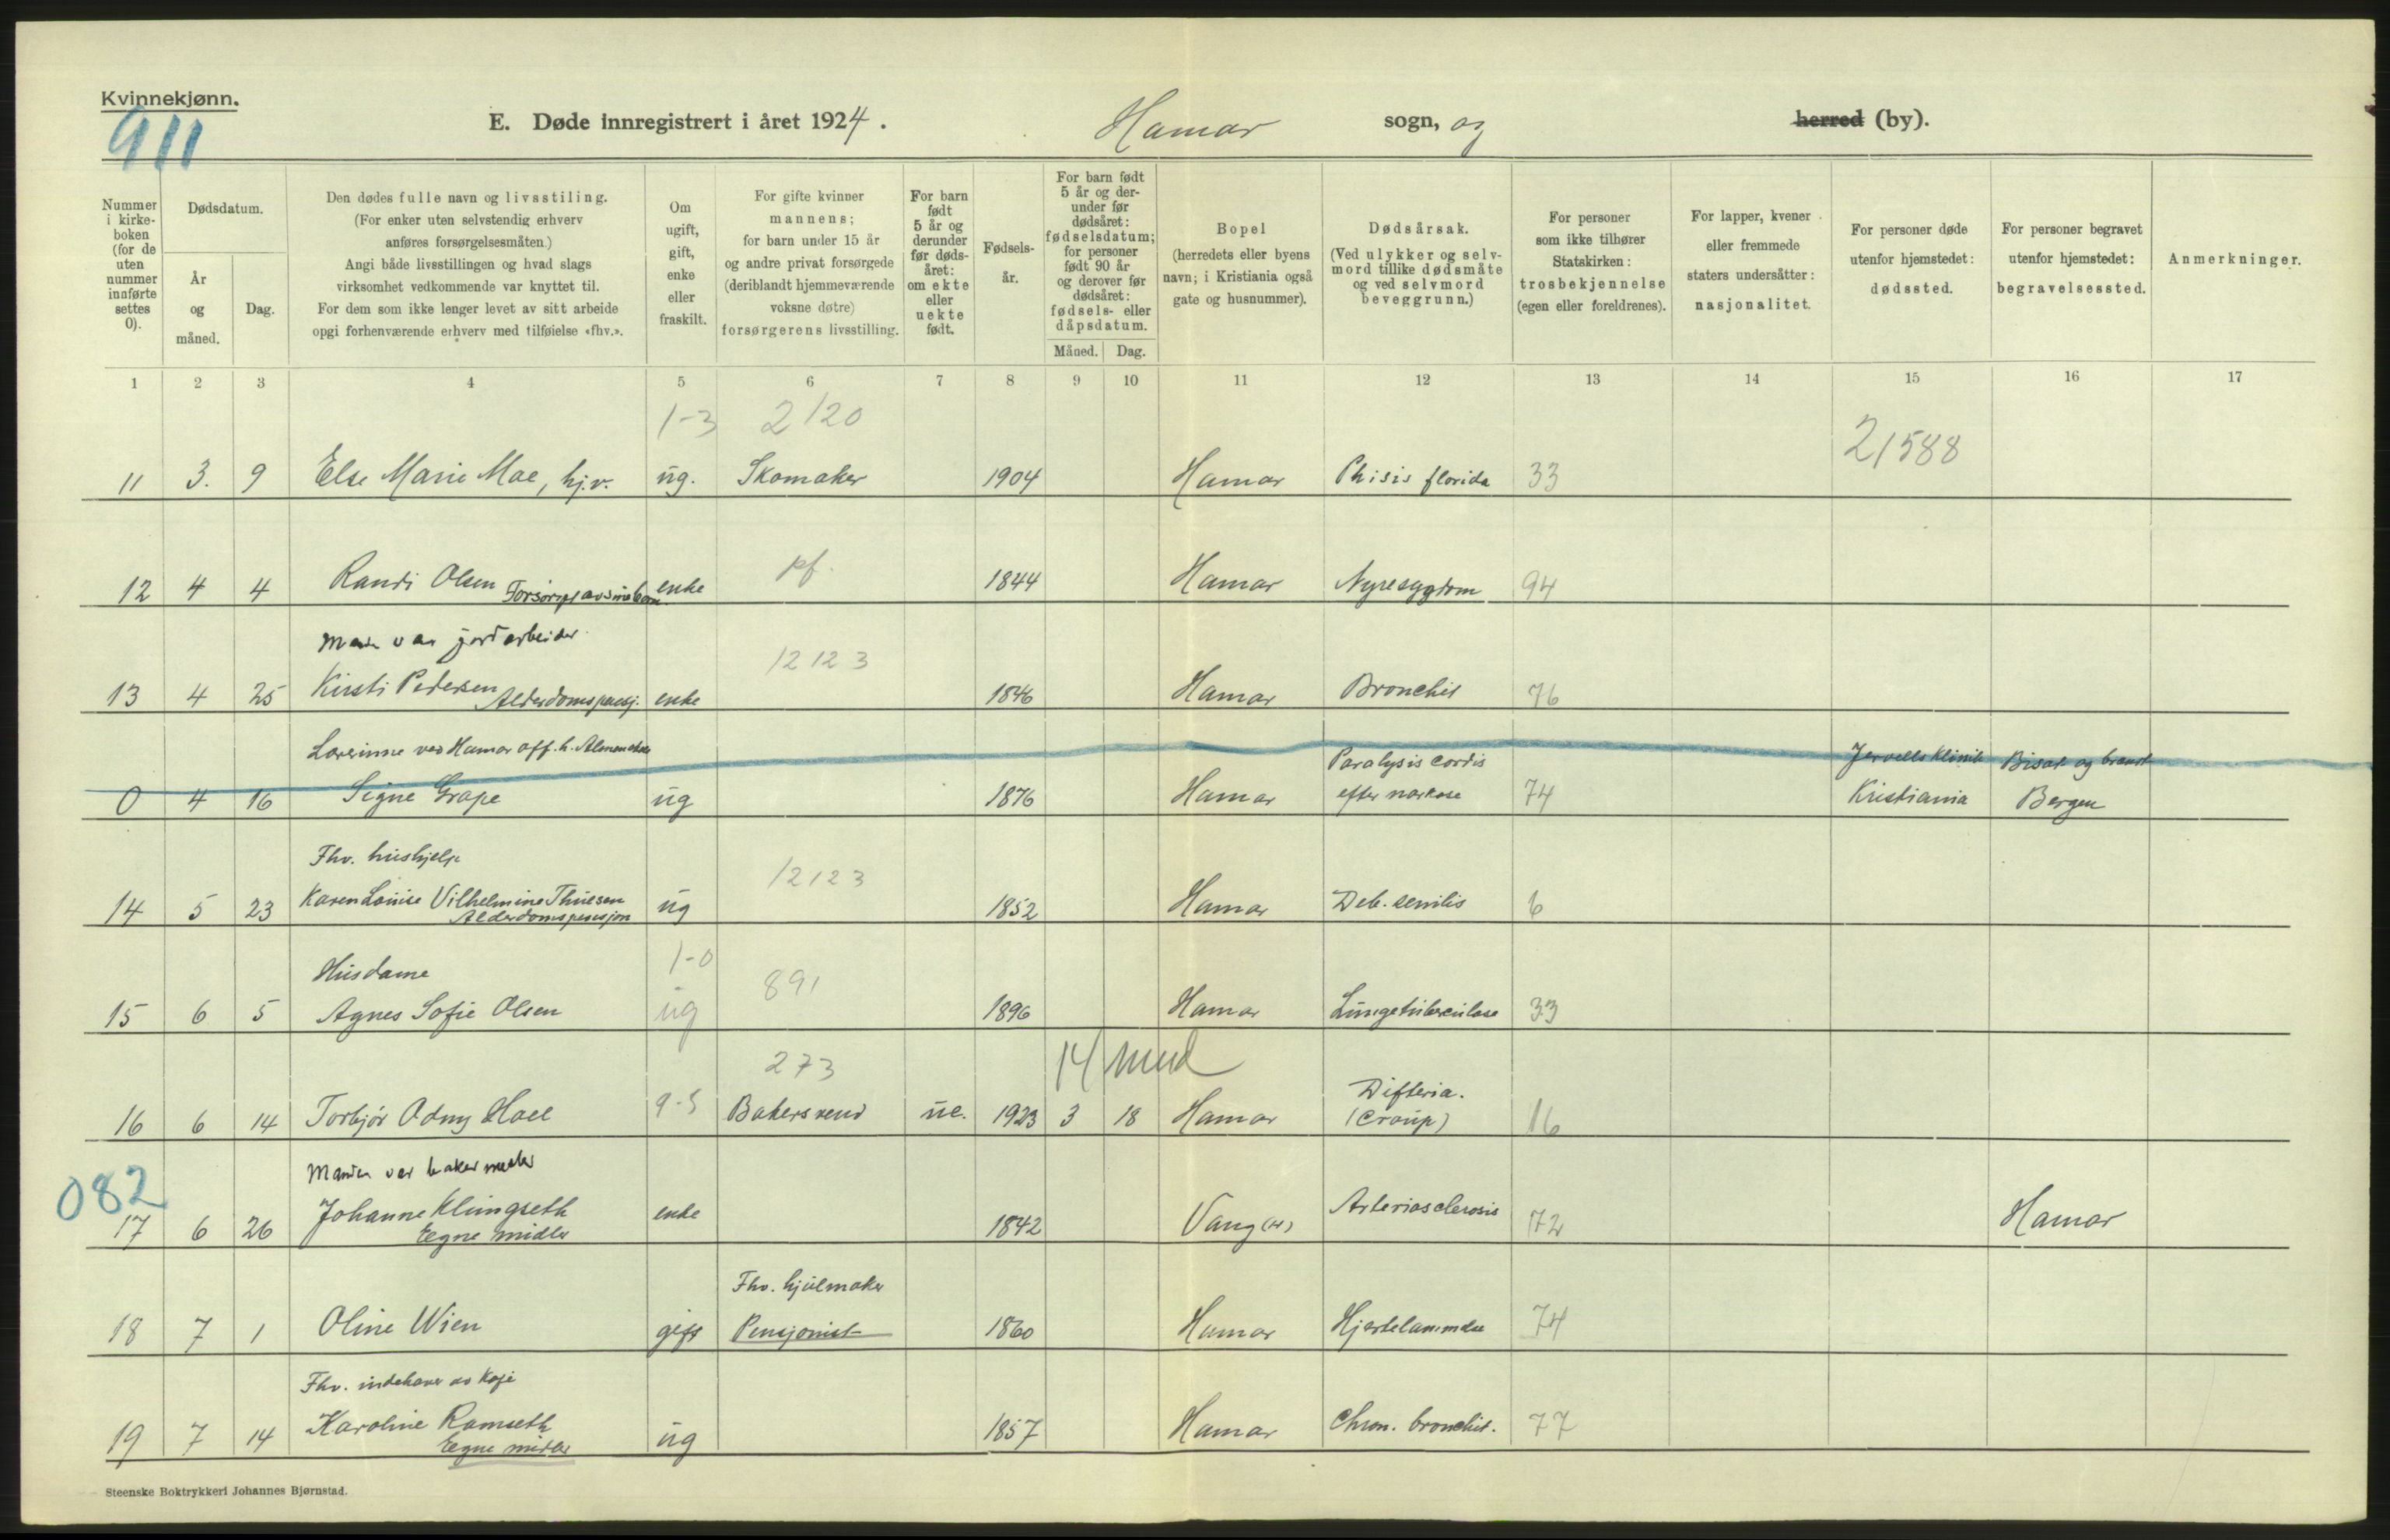 Kvinnekjønn.
911
E. Døde innregistrert i året 1924. Hamar sogn, og herred (by).
Nummer i kirke-boken (for de uten nummer innførte settes 0).
Dødsdatum.
År og måned.
Dag.
Den dødes fulle navn og livsstiling.
(For enker uten selvstendig erhverv
anføres forsørgelsesmåten.)
Angi både livsstillingen og hvad slags
virksomhet vedkommende var knyttet til.
For dem som ikke lenger levet av sitt arbeide
opgi forhenværende erhverv med tilføielse «fhv.».
Om
ugift,
gift,
enke
eller
fraskilt.
For gifte kvinner
mannens;
for barn under 15 år
og andre privat forsørgede
(deriblandt hjemmeværende
voksne døtre)
forsørgerens livsstilling.
For barn
født
5 år og
derunder
før døds-
året:
om ekte
eller
uekte
født.
Fødsels-
år.
For barn født
5 år og der-
under før
dødsåret:
fødselsdatum;
for personer
født 90 år
og derover før
dødsåret:
fødsels- eller
dåpsdatum.
Måned. Dag.
Bopel
(herredets eller byens
navn; i Kristiania også
gate og husnummer).
Dødsårsak.
(Ved ulykker og selv-
mord tillike dødsmåte
og ved selvmord
beveggrunn.)
For personer
som ikke tilhører
Statskirken:
trosbekjennelse
(egen eller foreldrenes).
For lapper, kvener
eller fremmede
staters undersåtter:
nasjonalitet.
For personer døde
utenfor hjemstedet:
dødssted.
For personer begravet
utenfor hjemstedet:
begravelsessted.
Anmerkninger.
1 2 3 4 5 6 7 8 9 10 11 12 13 14 15 16 17
1-3 2120 21588
11 3. 9 Else Marie Moe, hj.v. ug. Skomaker 1904 Hamar Phisis florida 33
pf.
12 4 4 Randi Olsen Forsørges av sine barn enke 1844 Hamar Nyresygdom 94
Manden var jordarbeider
12123
13 4 25 Kirsti Pedersen Alderdomspensj. enke 1846 Hamar Bronchit 76
Lærerinne ved Hamar off. h. Almenskole Paralysis cordis Jervells Klinik Bisat og brændt
0 4 16 Signe Grape ug 1876 Hamar efter narkose 74 Kristiania Bergen
Fhv. hushjelp
12123
14 5 23 Karen Louise Vilhelmine Thuesen ug 1852 Hamar Deb. senilis 6
Alderdomspensjon
Husdame 1-0 891
15 6 5 Agnes Sofie Olsen ug 1896 Hamar Lungetuberculose 33
273 14 mnd
Difteria.
16 6 14 Torbjør Odny Hoel 9-5 Bakersvend ue. 1923 3 18 Hamar (Croup) 16
082
Manden var bakermester
17 6 26 Johanne Klingseth enke 1842 Vang (H) Arteriosclerosis 72 Hamar
Egne midler
Fhv. hjulmaker
18 7 1 Oline Wien gift Pensjonist 1860 Hamar Hjertelammelse 74
Fhv. indehaver av Kafé
19 7 14 Karoline Ramseth ug 1857 Hamar Chron. bronchit. 77
Egne midler
Steenske Boktrykkeri Johannes Bjørnstad.